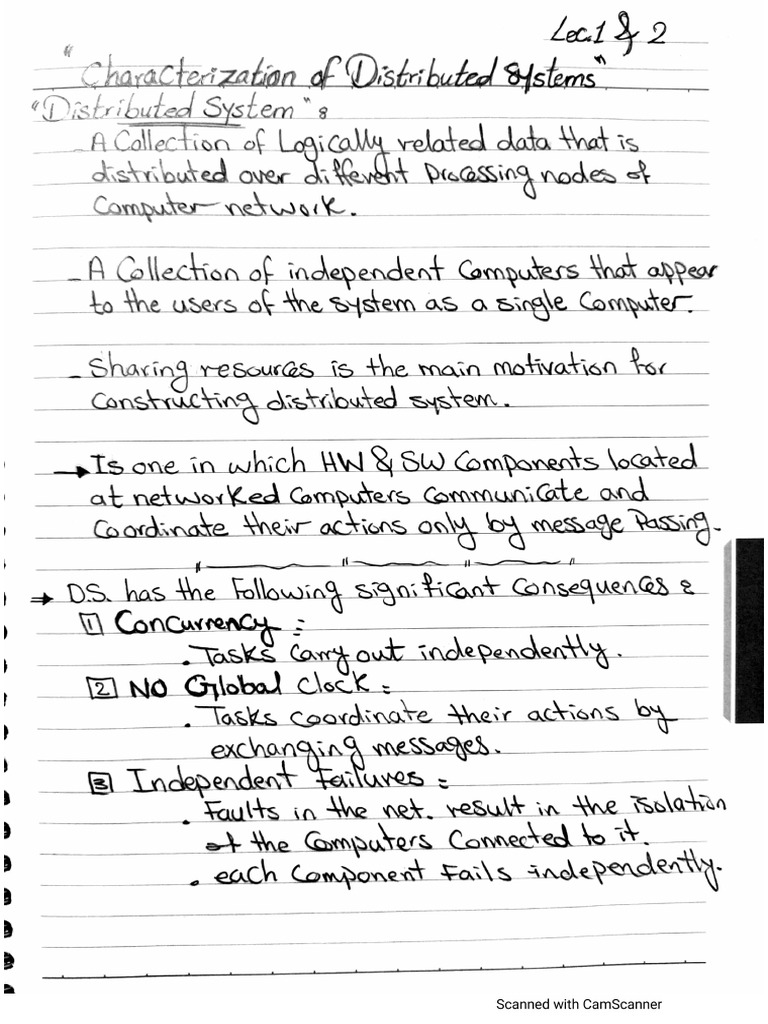 Lec.1 & 2
"Characterization of Distributed Systems"
"Distributed System" :
- A Collection of Logically related data that is
distributed over different Processing nodes of
Computer network.
- A Collection of independent Computers that appear
to the users of the system as a single Computer.
- Sharing resources is the main motivation for
Constructing distributed system.
→ Is one in which HW & SW Components located
at networked Computers Communicate and
Coordinate their actions only by message Passing.
→ D.S. has the Following significant Consequences :
1 Concurrency :
. Tasks Carry out independently.
2 No Global Clock :
. Tasks Coordinate their actions by
exchanging messages.
3 Independent Failures :
. Faults in the net. result in the isolation
of the Computers Connected to it.
. each Component Fails independently.
Scanned with CamScanner